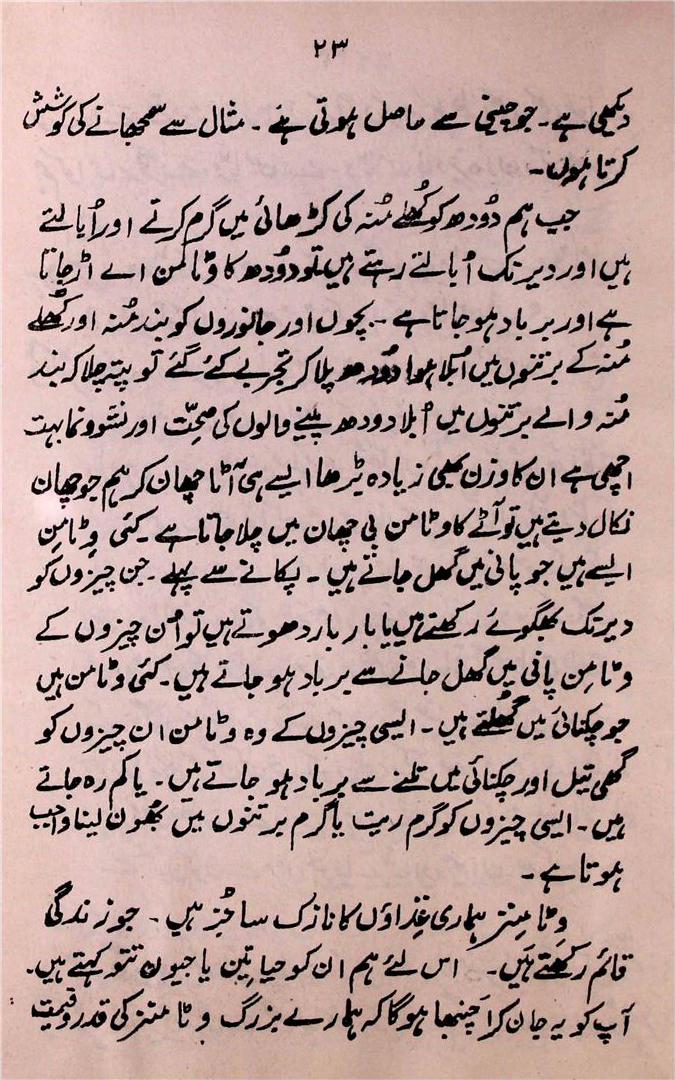 ۲۳
دیکھی ہے۔ جو چینی سے حاصل ہوتی ہے۔ مثال سے سمجھانے کی کوشش
کرتا ہوں۔
جب ہم دُودھ کو کُھلے مُنہ کی کڑھائی میں گرم کرتے اور اُبالتے
ہیں اور دیر تک اُبالتے رہتے ہیں تو دودھ کا وٹامن اے اڑ جاتا
ہے اور برباد ہو جاتا ہے۔ بچوں اور جانوروں کو بند مُنہ اور کُھلے
مُنہ کے برتنوں میں اُبلا ہوا دُودھ پلا کر تجربے کئے گئے تو پتہ چلا کہ بند
مُنہ والے برتنوں میں اُبلا دودھ پینے والوں کی صحّت اور نشوونما بہت
اچھی ہے ان کا وزن بھی زیادہ بڑھا ایسے ہی آٹا چھان کر ہم جو چھان
نکال دیتے ہیں تو آٹے کا وٹامن بی چھان میں چلا جاتا ہے۔ کئی وِٹامِن
ایسے ہیں جو پانی میں گھل جاتے ہیں۔ پکانے سے پہلے۔ جن چیزوں کو
دیر تک بھگوئے رکھتے ہیں یا بار بار دھوتے ہیں تو اُمن چیزوں کے
وٹامِن پانی میں گھل جانے سے برباد ہو جاتے ہیں۔ کئی وٹامن ہیں
جو چکنائی میں گُھلتے ہیں۔ ایسی چیزوں کے وہ وٹامن ان چیزوں کو
گھی تیل اور چکنائی میں تلنے سے برباد ہو جاتے ہیں۔ یا کم رہ جاتے
ہیں۔ ایسی چیزوں کو گرم ریت یا گرم برتنوں میں بُھون لینا واجب
ہوتا ہے۔
وٹامِنز ہماری غِذاؤں کا نازک سا جُز ہیں۔ جو زندگی
قائم رکھتے ہیں۔ اس لئے ہم ان کو حیاتین یا جیون تتو کہتے ہیں۔
آپ کو یہ جان کر اَچنبھا ہوگا کہ ہمارے بزرگ وٹامنز کی قدر و قیمت